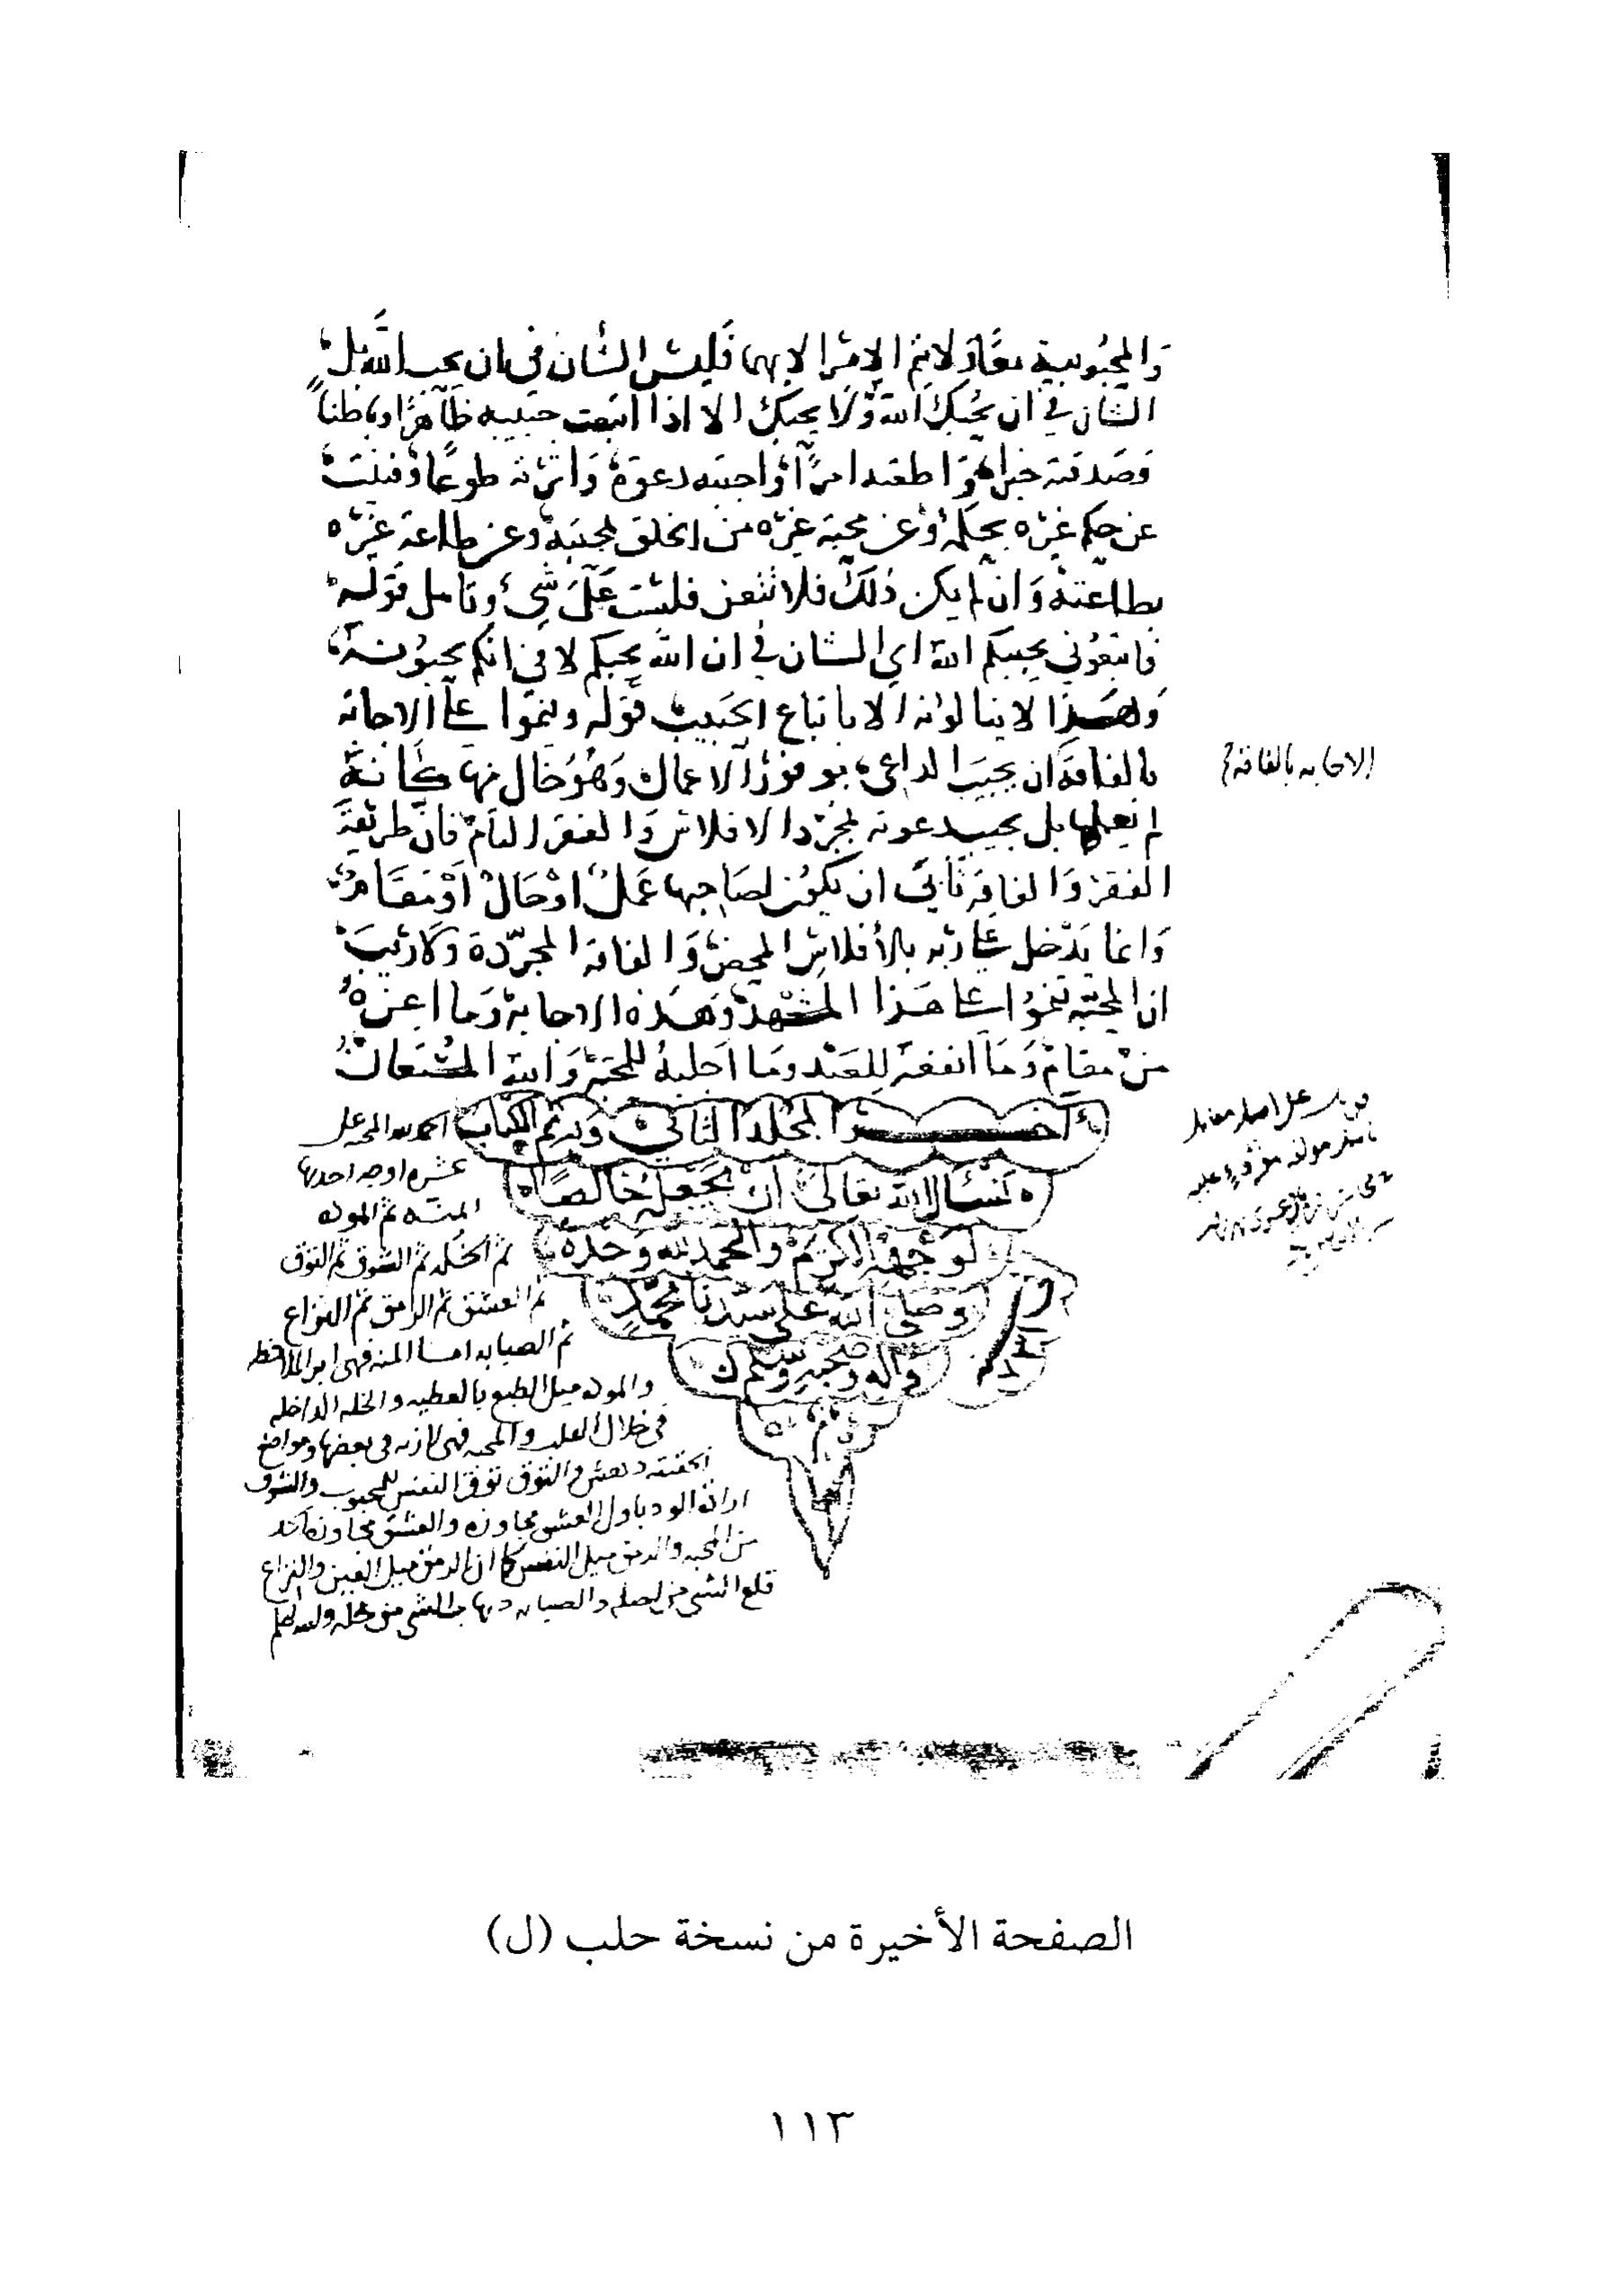 والمحبوبية معًا ولا يتم الامر الا بهما فليس الشان في ان تحب الله بل
الشان في ان يحبك الله ولا يحبك الا اذا اتبعت حبيبه ظاهرًا وباطنًا
وصدقته خبرا واطعته امرًا واجبته دعوة واثرته طوعًا وفنيت
عن حكم غيره بحكمه وعن محبة غيره من الخلق بمحبته وعن طاعة غيره
بطاعته وان لم يكن ذلك فلا تتعن فلست على شيء وتامل قوله
فاتبعوني يحببكم الله اي الشان في ان الله يحبكم لا في انكم تحبونه
وهذا لا ينالونه الا باتباع الحبيب قوله وينموا على الاجابة
بالفاقة ان يجيب الداعي بوفور الاعمال وهو خال منها كانه
لم يعملها بل يجيب دعوته بمجرد الافلاس والفقر التام فان طريقة
الفقر والفاقة تابى ان يكون لصاحبها عمل او حال او مقام
وانما يدخل على ربه بالافلاس المحض والفاقة المجردة ولا ريب
ان المحبة تنموا على هذا المشهد وهذه الاجابة وما اعزه
من مقام وما انفعه للعبد وما اجلبه للمحبة والله المستعان
الاجابه بالفاقة
آخر المجلد الثاني وبه تم الكتاب
نسئال الله تعالى ان يجعله خالصًا
لوجهه الكريم والحمد لله وحده
وصلى الله على سيدنا محمد
وآله وصحبه وسلم
الحمد لله المحبه على
عشره اوجه احدها
ثم الخله ثم الشوق ثم التوق
ثم العشق ثم الرمق ثم النزاع
ثم الصبابه اما
والموده ميل الطبع بالعطيه والخله الداخله
في خلال القلب والمحبه فهي لازمه في بعضها ومواضع
والتوق توق النفس للمحبوب والشوق
من المحبه والرمق ميل النفس كما ان الرمق ميل العين والنزاع
قلع الشي من اصله والصبابه
الصفحة الأخيرة من نسخة حلب (ل)
١١٣